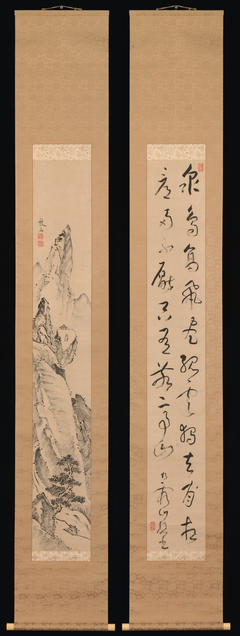 衆鳥高飛盡孤雲獨去閑相
看両不厭只有敬亭山